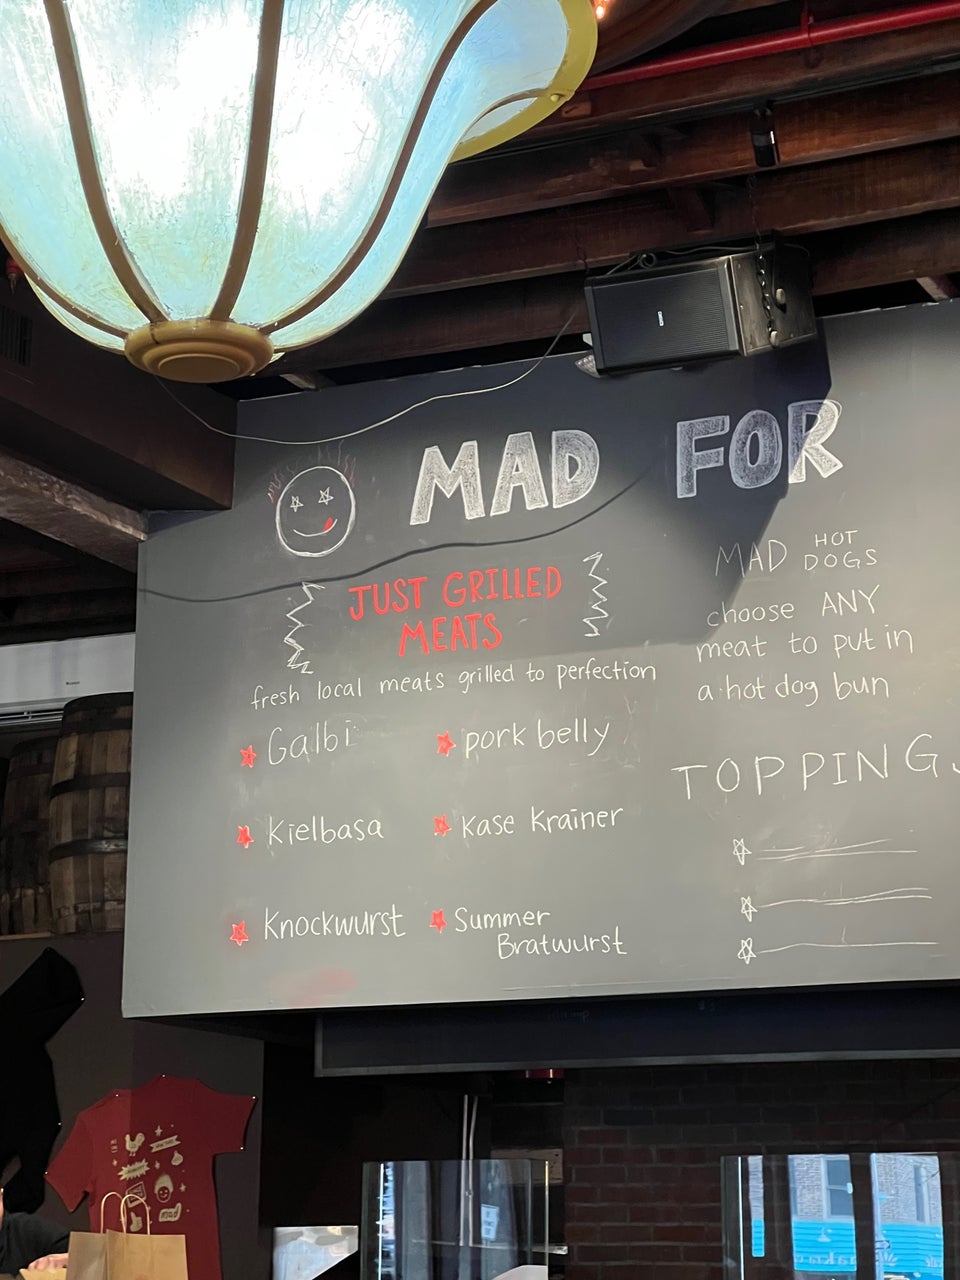 MAD FOR
JUST GRILLED
MEATS
fresh local meats grilled to perfection
Galbi
pork belly
Kielbasa
Kase Krainer
Knockwurst
Summer
Bratwurst
MAD HOT
DOGS
choose ANY
meat to put in
a hot dog bun
TOPPING